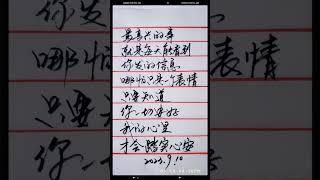 最高兴的事
就是每天能看到
你发的信息
哪怕只是一个表情
只要知道
你一切安好
我的心里
才会踏实心安
2023.9.10